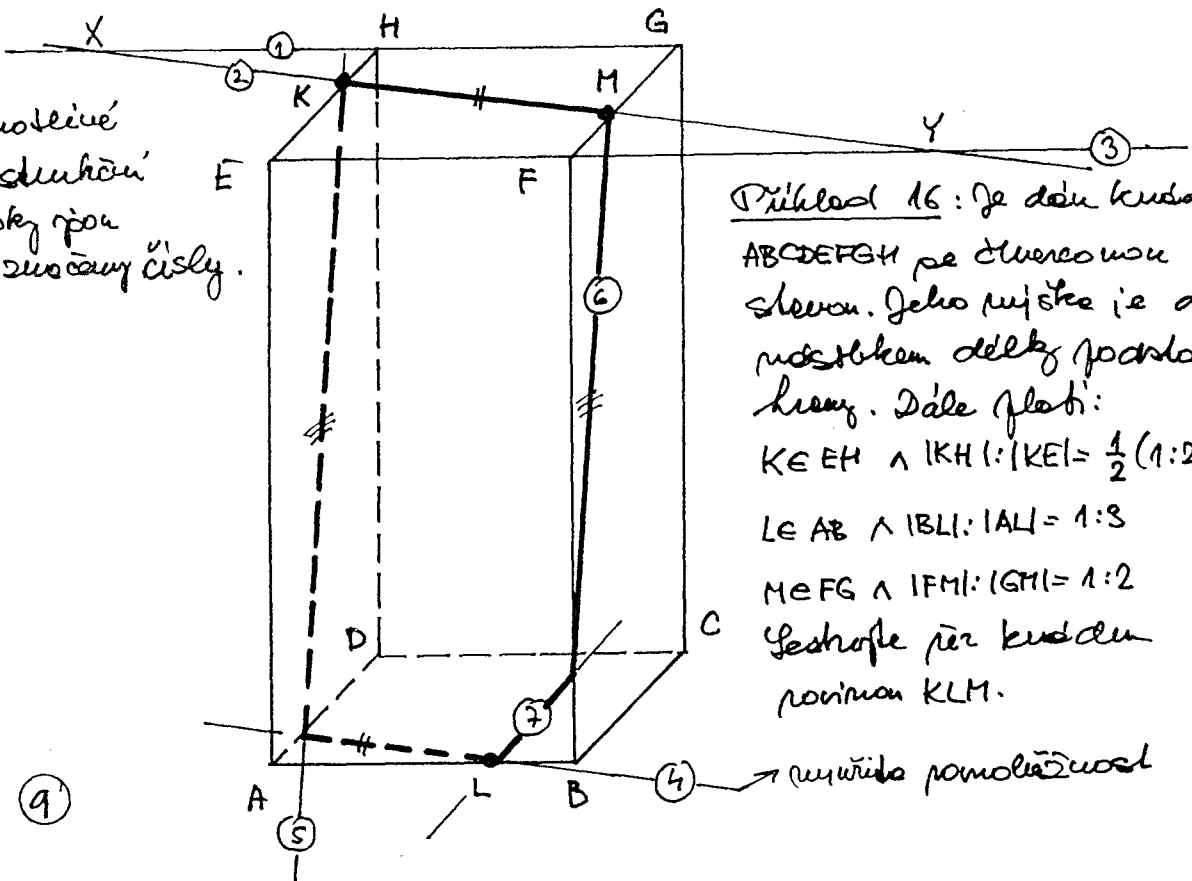 X
H
G
1
2
K
M
Y
3
E
F
značeny čísly.
Příklad 16: Je dán kvád
ABCDEFGH se čtvercovou
stavou. Jeho výška je d
násobkem délky podsta
hrany. Dále platí:
K∈EH ∧ |KH|:|KE|= 1/2 (1:2
6
L∈AB ∧ |BL|:|AL|= 1:3
M∈FG ∧ |FM|:|GM|= 1:2
Sestrojte řez kvádru
rovinou KLM.
D
C
7
A
L
B
4
využito rovnoběžnost
5
9'